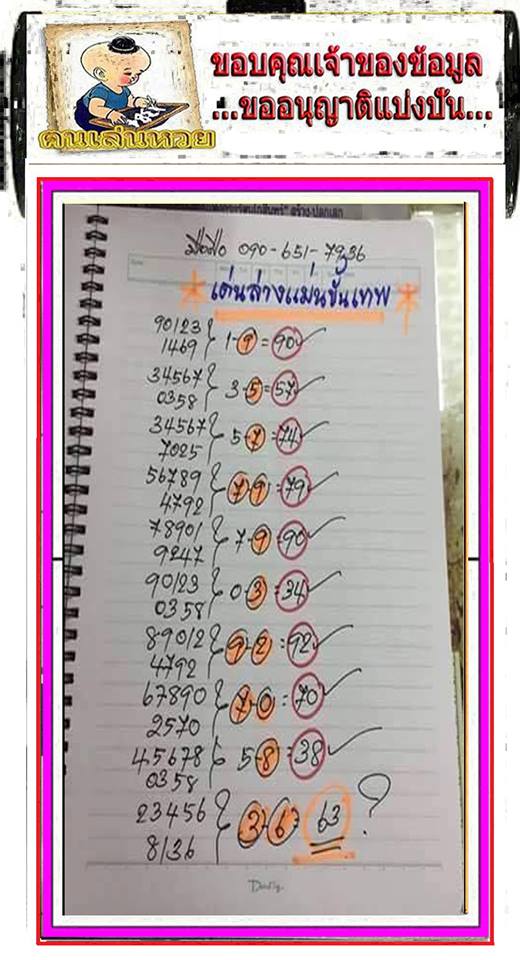 ขอบคุณเจ้าของข้อมูล
...ขออนุญาติแบ่งปัน...
คนเล่นหวย
มือถือ 090-651-7936
เด่นล่างแม่นขั้นเทพ
90123
1469 } 1-9 = 90 ✓
34567
0358 } 3-5 = 57 ✓
34567
7025 } 5-7 = 74 ✓
56789
4792 } 7-9 = 79 ✓
78901
9247 } 7-9 = 90 ✓
90123
0358 } 0-3 = 34 ✓
89012
4792 } 9-2 = 92 ✓
67890
2570 } 7-0 = 70 ✓
45678
0358 } 5-8 = 38 ✓
23456
8136 } 3-6 = 63 ?